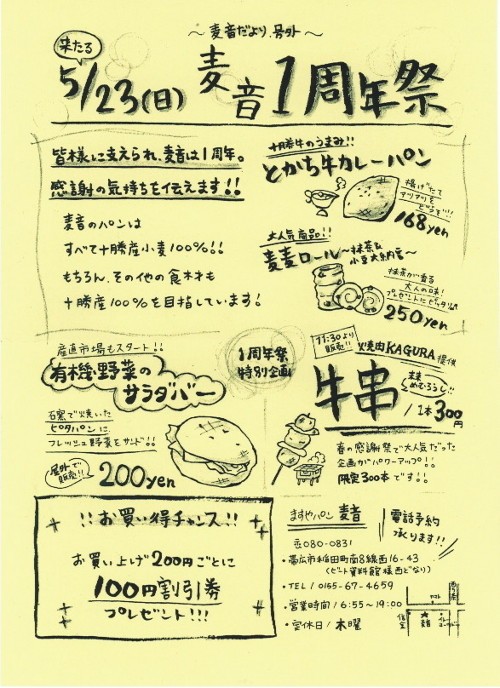 ～麦音だより、号外～
来たる
5/23(日) 麦音1周年祭
皆様に支えられ、麦音は1周年。
感謝の気持ちを伝えます!!
麦音のパンは
すべて十勝産小麦100%!!
もちろん、その他の食材も
十勝産100%を目指しています!
十勝牛のうまみ!!
とかち牛カレーパン
揚げたて
アツアツを
どうぞ!!!
168yen
大人気商品!!
麦麦ロール～抹茶&
小豆大納言～
抹茶が香る
大人の味!
プレゼントにピッタリ
250yen
産直市場もスタート!!
有機・野菜の
サラダバー
石窯で焼いた
ピタパンに
フレッシュ野菜をサンド!!
屋外で
販売!!
200yen
1周年祭
特別企画
11:30より
販売!!
焼肉KAGURA提供
牛串
/1本300円
春の感謝祭で大人気だった
企画がパワーアップ!!
限定300本です!!
!!お買い得チャンス!!
お買い上げ200円ごとに
100円割引券
プレゼント!!!
ますやパン 麦音
電話予約
承ります!!
〒080-0831
・帯広市稲田町南8線西16-43
(ビート資料館様西どなり)
・TEL/0155-67-4659
・営業時間/6:55～19:00
・定休日/木曜